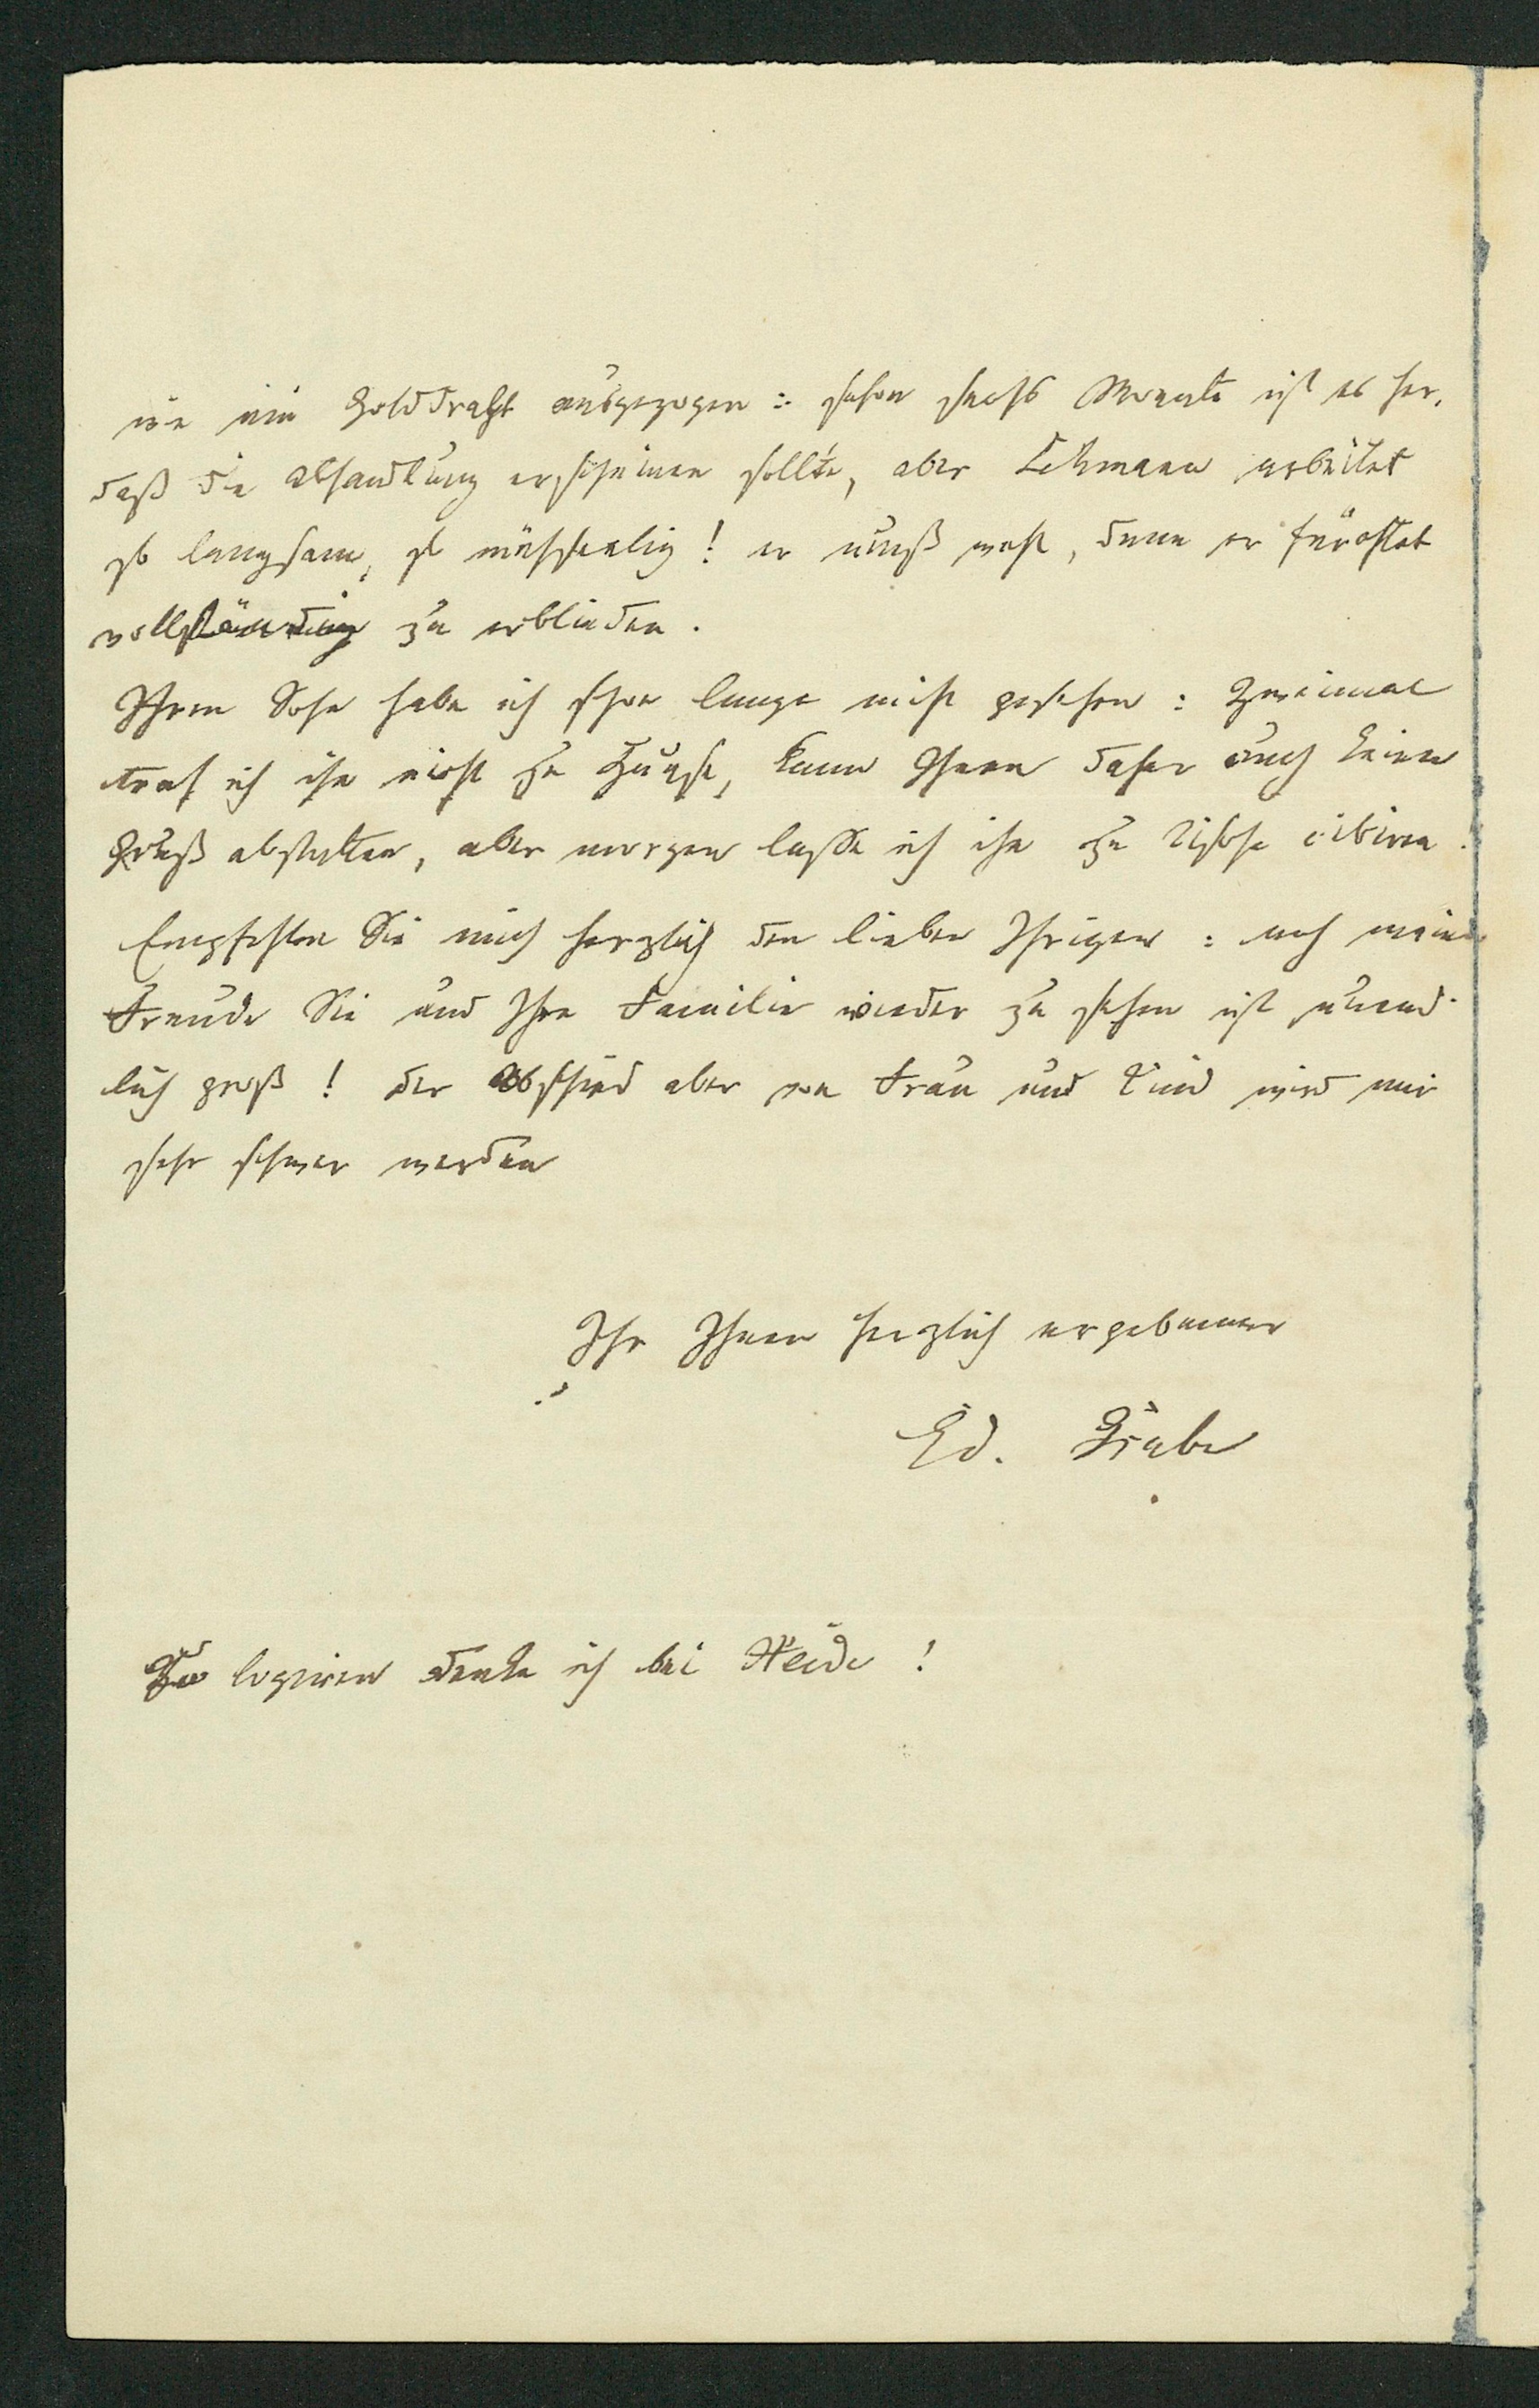 wie ein Golddraht ausgezogen: schon sechs Monate ist es her,
daß die Abhandlung erscheinen sollte, aber Lehmann arbeitet
so langsam, so mühseelig! er muß wohl, denn er fürchtet
vollständig zu erblinden.
Ihren Sohn habe ich schon lange nicht gesehen: zweimal
traf ich ihn nicht zu Hause, kann Ihnen daher auch keinen
Gruß abstatten, aber morgen lasse ich ihn zu Tische citiren.
Empfehlen Sie mich herzlich den lieben Ihrigen: auch meine
Freude Sie und Ihre Familie wieder zu sehen ist unend-
lich groß! der Abschied aber von Frau und Kind wird mir
sehr schwer werden
Ihr Ihnen herzlich ergebener
Ed. Grube
Zu logiren denke ich bei Heide!